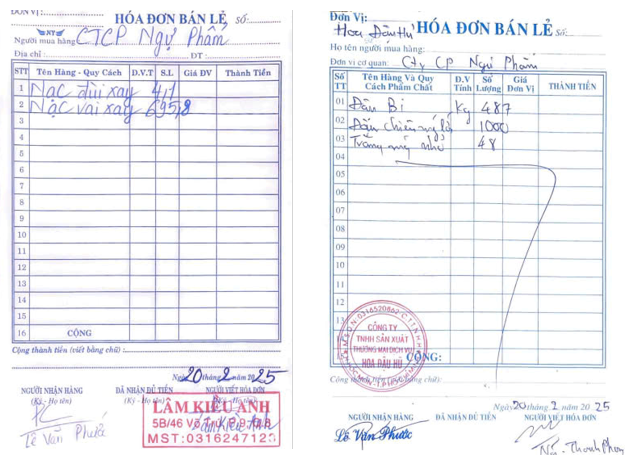 ĐƠN VỊ:
HÓA ĐƠN BÁN LẺ Số:
NT
Người mua hàng: CTCP Ngự Phẩm
Địa chỉ: ĐT:
STT Tên Hàng - Quy Cách D.V.T S.L Giá ĐV Thành Tiền
1 Nạc đùi xay 4,1
2 Nạc vai xay 695,8
3
4
5
6
7
8
9
10
11
12
13
14
15
16 CỘNG
Cộng thành tiền (viết bằng chữ):
Ngày 20 tháng 2 năm 2025
NGƯỜI NHẬN HÀNG ĐÃ NHẬN ĐỦ TIỀN NGƯỜI VIẾT HÓA ĐƠN
(Ký - Họ tên) (Ký - Họ tên)
Lê Văn Phước
LÂM KIỀU ANH
5B/46
MST: 0316247123
Đơn Vị:
Hoa Đậu Hủ
HÓA ĐƠN BÁN LẺ Số:
Họ tên người mua hàng:
Đơn vị cơ quan: Cty CP Ngự Phẩm
Số TT Tên Hàng Và Quy Cách Phẩm Chất Đ.V Tính Số Lượng Giá Đơn Vị THÀNH TIỀN
01 Đậu Bi Kg 487
02 Đậu chiên 1000
03 Trắng nhỏ 48
04
05
06
07
08
09
10
11
12
13
CỘNG:
CÔNG TY
TNHH SẢN XUẤT
THƯƠNG MẠI DỊCH VỤ
HOA ĐẬU HỦ
Cộng thành tiền (viết bằng chữ):
Ngày 20 tháng 2 năm 2025
NGƯỜI NHẬN HÀNG ĐÃ NHẬN ĐỦ TIỀN NGƯỜI VIẾT HÓA ĐƠN
Lê Văn Phước